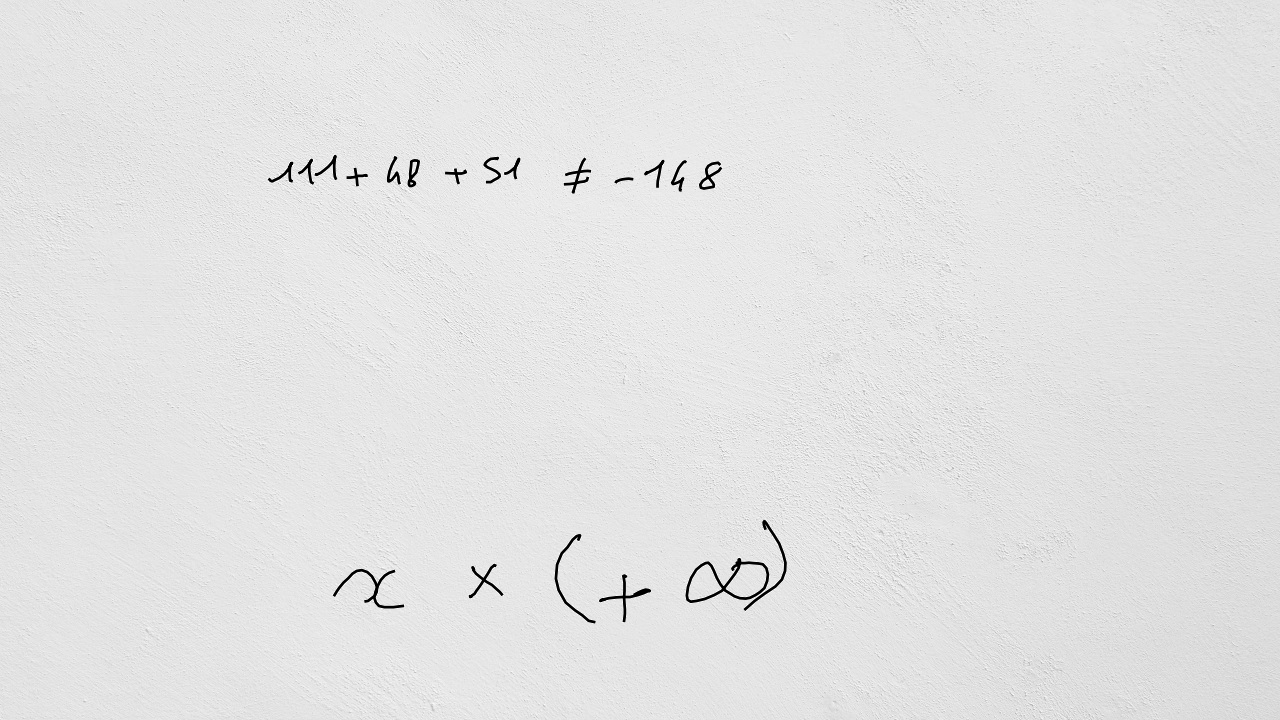 111 + 48 + 51 ≠ -148
x × (+ ∞)